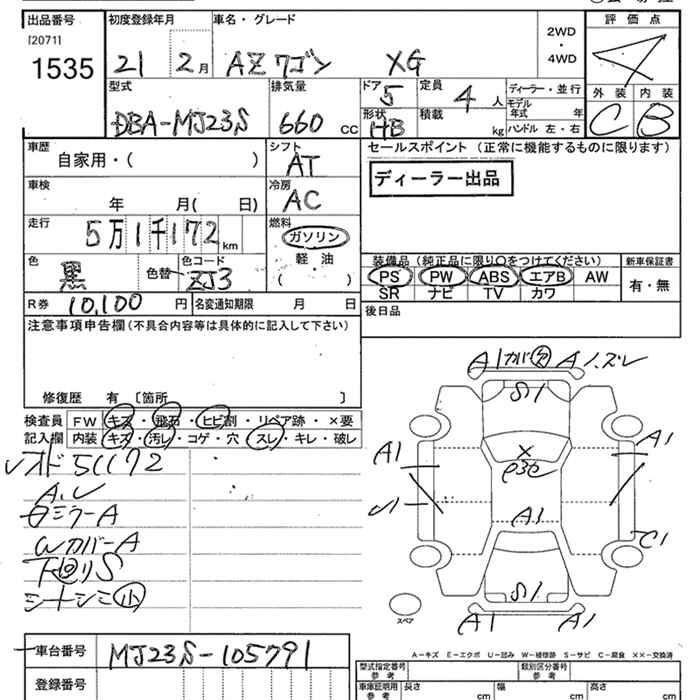 出品番号 初度登録年月 車名・グレード 2WD・4WD 評価点
[2071]
1535
21 2月 AZワゴン XG 4
型式 排気量 ドア 定員 ディーラー・並行 外装 内装
DBA-MJ23S 660 CC 5 4人 モデル年式 年 C B
形状 HB 積載 kg ハンドル 左・右
車歴 自家用・( ) シフト AT セールスポイント (正常に機能するものに限ります)
車検 年 月( 日) 冷房 AC ディーラー出品
走行 5万1千172km 燃料 ガソリン
軽油
( )
色 黒 色替 色コード ZJ3 装備品(純正品に限り○をつけてください) 新車保証書
PS PW ABS エアB AW 有・無
SR ナビ TV カワ
R券 10,100 円 名変通知期限 月 日 後日品
注意事項申告欄(不具合内容等は具体的に記入して下さい)
修復歴 有 〔箇所 〕
検査員 FW キズ・飛石・ヒビ割・リペア跡・×要
記入欄 内装 キズ・汚レ・コゲ・穴・スレ・キレ・破レ
A1 A1
S1
A1 A1
A1
C1
S1
A1 A1
スペア
シートシミ小
車台番号 MJ23S-105791
登録番号
A-キズ E-エクボ U-凹み W-補修跡 S-サビ C-腐食 ××-交換済
型式指定番号 参考 類別区分番号 参考
車庫証明用 参考 長さ cm 幅 cm 高さ cm